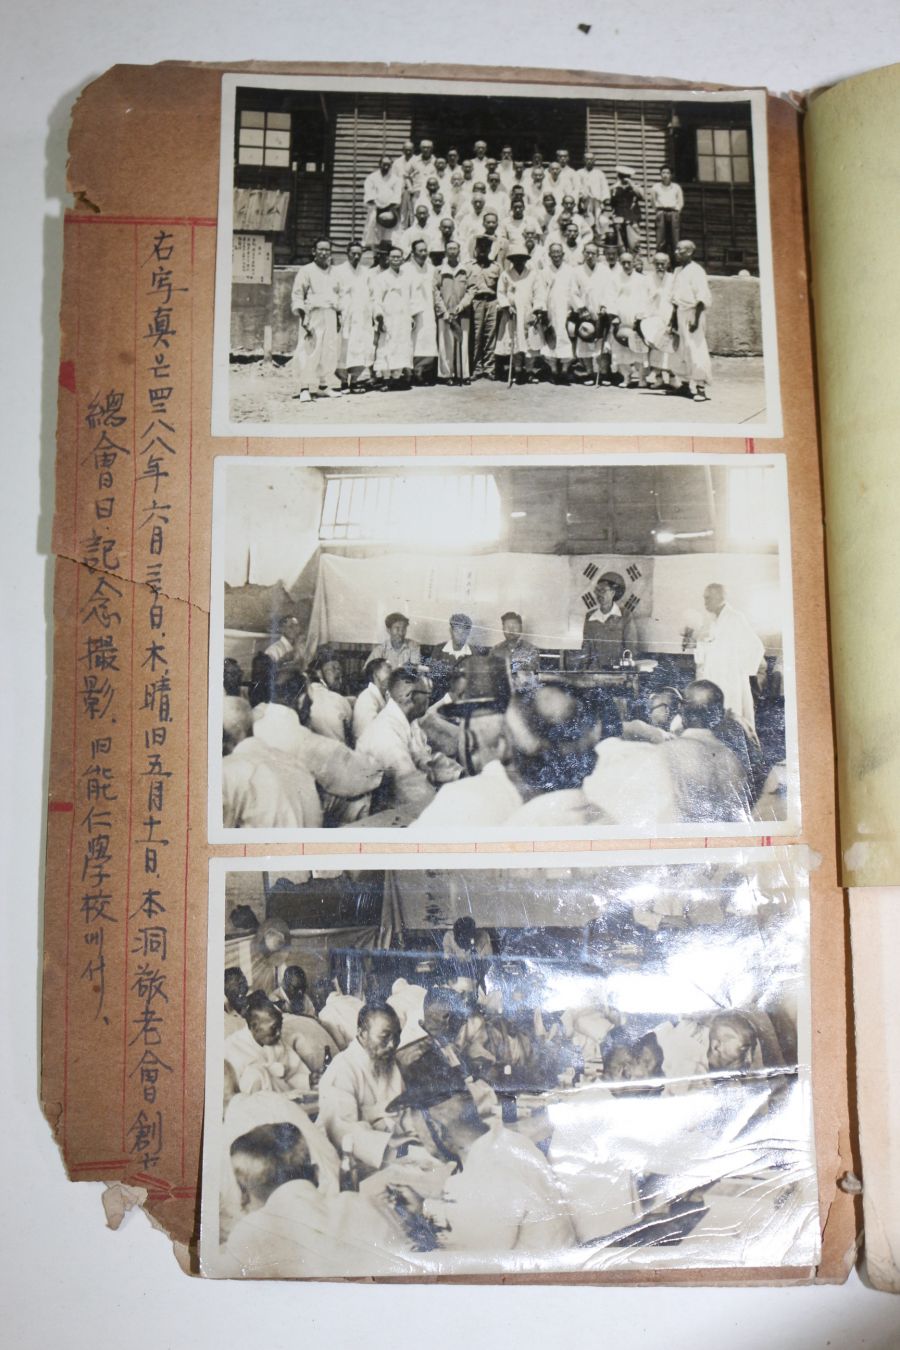 右写真은四二八八年六月三十日、木、晴、旧五月十一日、本洞敬老會創立
總會日、記念撮影、旧能仁學校에서、